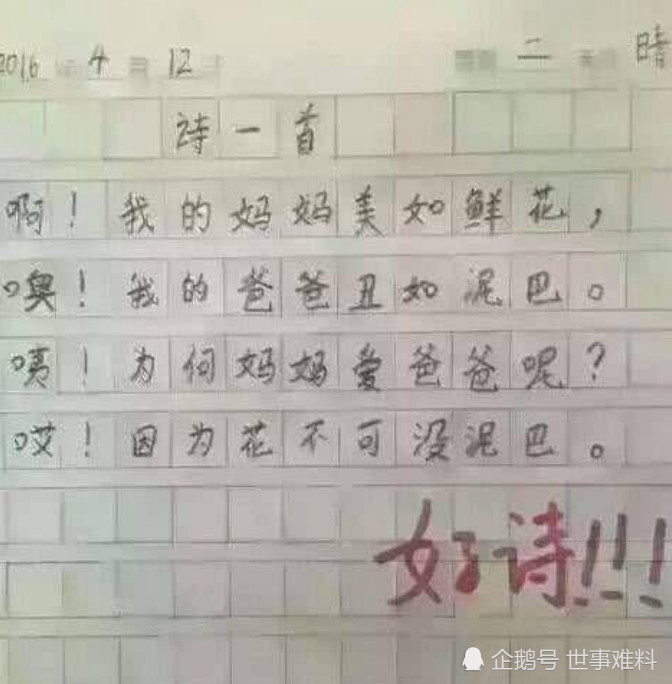 2016 4 12 二 晴
诗一首
啊！我的妈妈美如鲜花，
噢！我的爸爸丑如泥巴。
咦！为何妈妈爱爸爸呢？
哎！因为花不可没泥巴。
好诗!!!
企鹅号 世事难料